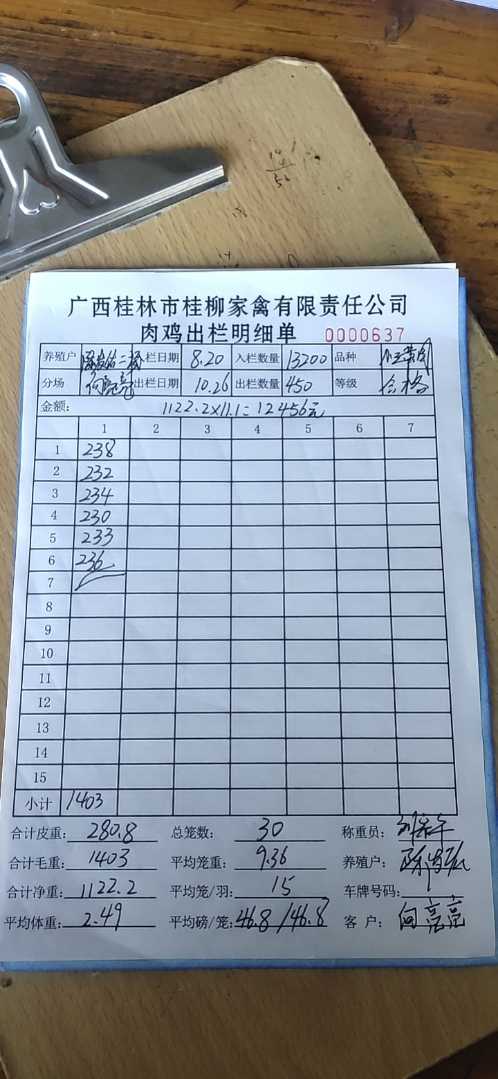 广西桂林市桂柳家禽有限责任公司
肉鸡出栏明细单 0000637
养殖户 二 栏日期 8.20 入栏数量 13200 品种
分场 何亮亮 出栏日期 10.26 出栏数量 450 等级 合格
金额: 1122.2×11.1=12456元
1 2 3 4 5 6 7
1 238
2 232
3 234
4 230
5 233
6 236
7
8
9
10
11
12
13
14
15
小计 1403
合计皮重: 280.8 总笼数: 30 称重员:
合计毛重: 1403 平均笼重: 9.36 养殖户:
合计净重: 1122.2 平均笼/羽: 15 车牌号码:
平均体重: 2.49 平均磅/笼: 46.8/46.8 客户: 何亮亮